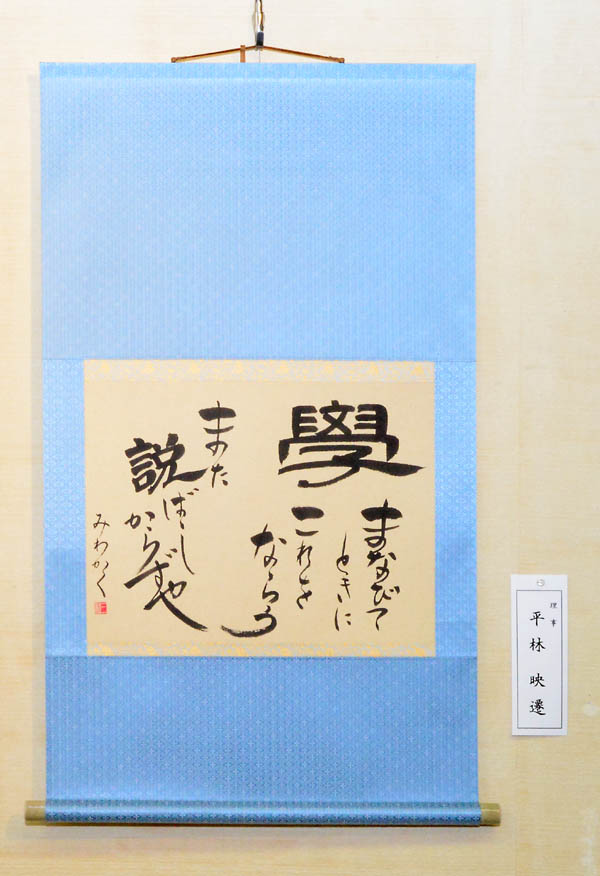 學
まなびて
ときに
これを
ならう
また
説ばし
からずや
みわかく
理事
平林 映遷